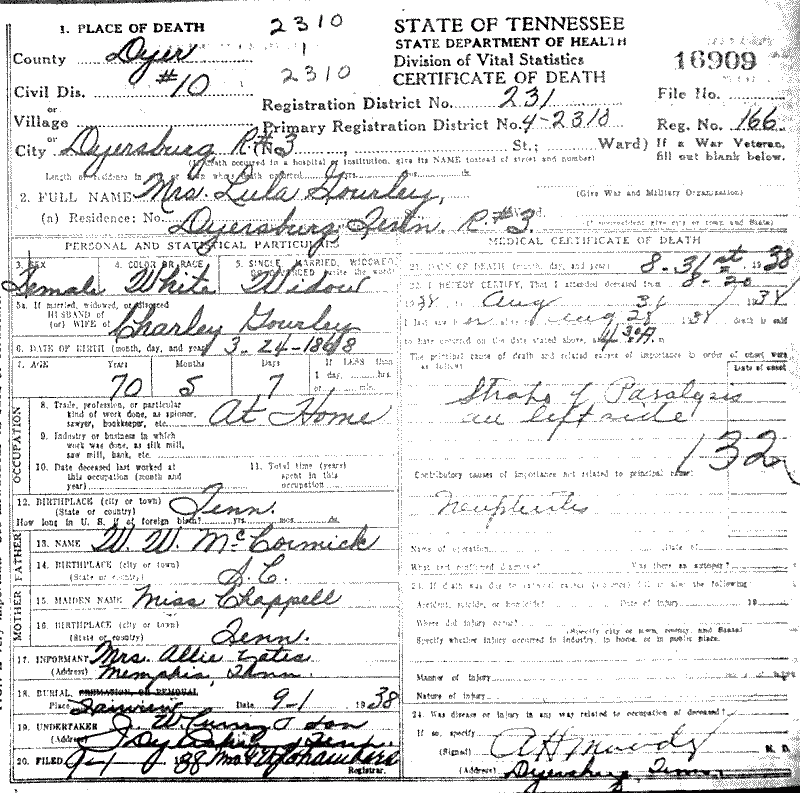 1. PLACE OF DEATH
2310
County Dyer
1
Civil Dis. #10
2310
or
Village
or
City Dyersburg R.#3
STATE OF TENNESSEE
STATE DEPARTMENT OF HEALTH
Division of Vital Statistics
CERTIFICATE OF DEATH
16909
File No.
Registration District No. 231
Primary Registration District No. 4-2310
Reg. No. 166
St.; Ward)
If a War Veteran,
fill out blank below.
(If death occurred in a hospital or institution, give its NAME instead of street and number)
Length of residence in city or town where death occurred yrs. mos. ds.
2. FULL NAME Mrs. Lula Gourley,
(Give War and Military Organization)
(a) Residence: No. Dyersburg Tenn. R.#3. Ward.
(If nonresident give city or town and State)
PERSONAL AND STATISTICAL PARTICULARS
3. SEX
Female
4. COLOR OR RACE
White
5. SINGLE, MARRIED, WIDOWED, OR DIVORCED (write the word)
Widow
5a. If married, widowed, or divorced
HUSBAND of
(or) WIFE of Charley Gourley
6. DATE OF BIRTH (month, day, and year) 3-24-1868
7. AGE Years Months Days If LESS than
1 day, hrs.
or min.
70 5 7
OCCUPATION
8. Trade, profession, or particular
kind of work done, as spinner,
sawyer, bookkeeper, etc. At Home
9. Industry or business in which
work was done, as silk mill,
saw mill, bank, etc.
10. Date deceased last worked at
this occupation (month and
year)
11. Total time (years)
spent in this
occupation
12. BIRTHPLACE (city or town)
(State or country) Tenn.
How long in U. S. if of foreign birth? yrs. mos. ds.
FATHER
13. NAME W. W. McCormick
14. BIRTHPLACE (city or town)
(State or country) S.C.
MOTHER
15. MAIDEN NAME Miss Chappell
16. BIRTHPLACE (city or town)
(State or country) Tenn.
17. INFORMANT Mrs. Allie Yates
(Address) Memphis, Tenn.
18. BURIAL, CREMATION, OR REMOVAL
Place Fairview Date 9-1 1938
19. UNDERTAKER J. W. Curry & Son
(Address) Dyersburg, Tenn.
20. FILED 9-1 1938
Registrar.
MEDICAL CERTIFICATE OF DEATH
21. DATE OF DEATH (month, day, and year) 8-31st 1938
22. I HEREBY CERTIFY, That I attended deceased from 8-20
1938, to Aug 31 1938
I last saw her alive on Aug 28 1938 death is said
to have occurred on the date stated above, at 4 30 A. m
The principal cause of death and related causes of importance in order of onset were
as follows:
Date of onset
Stroke of Paralysis
on left side
132
Contributory causes of importance not related to principal cause:
Nephritis
Name of operation Date of
What test confirmed diagnosis? Was there an autopsy?
23. If death was due to external causes (violence) fill in also the following
Accident, suicide, or homicide? Date of injury 19
Where did injury occur?
(Specify city or town, county, and State)
Specify whether injury occurred in industry, in home, or in public place.
Manner of Injury
Nature of injury
24. Was disease or injury in any way related to occupation of deceased?
If so, specify
(Signed) A H Moody M. D.
(Address) Dyersburg, Tenn.